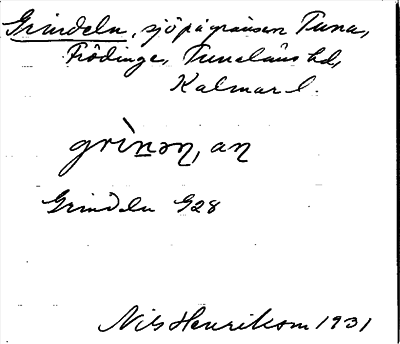 Grindeln, sjö på gränsen Tuna,
Frödinge, Tunaläns hd,
Kalmar l.
grìnən, an
Grindeln G28
Nils Henrikson 1931